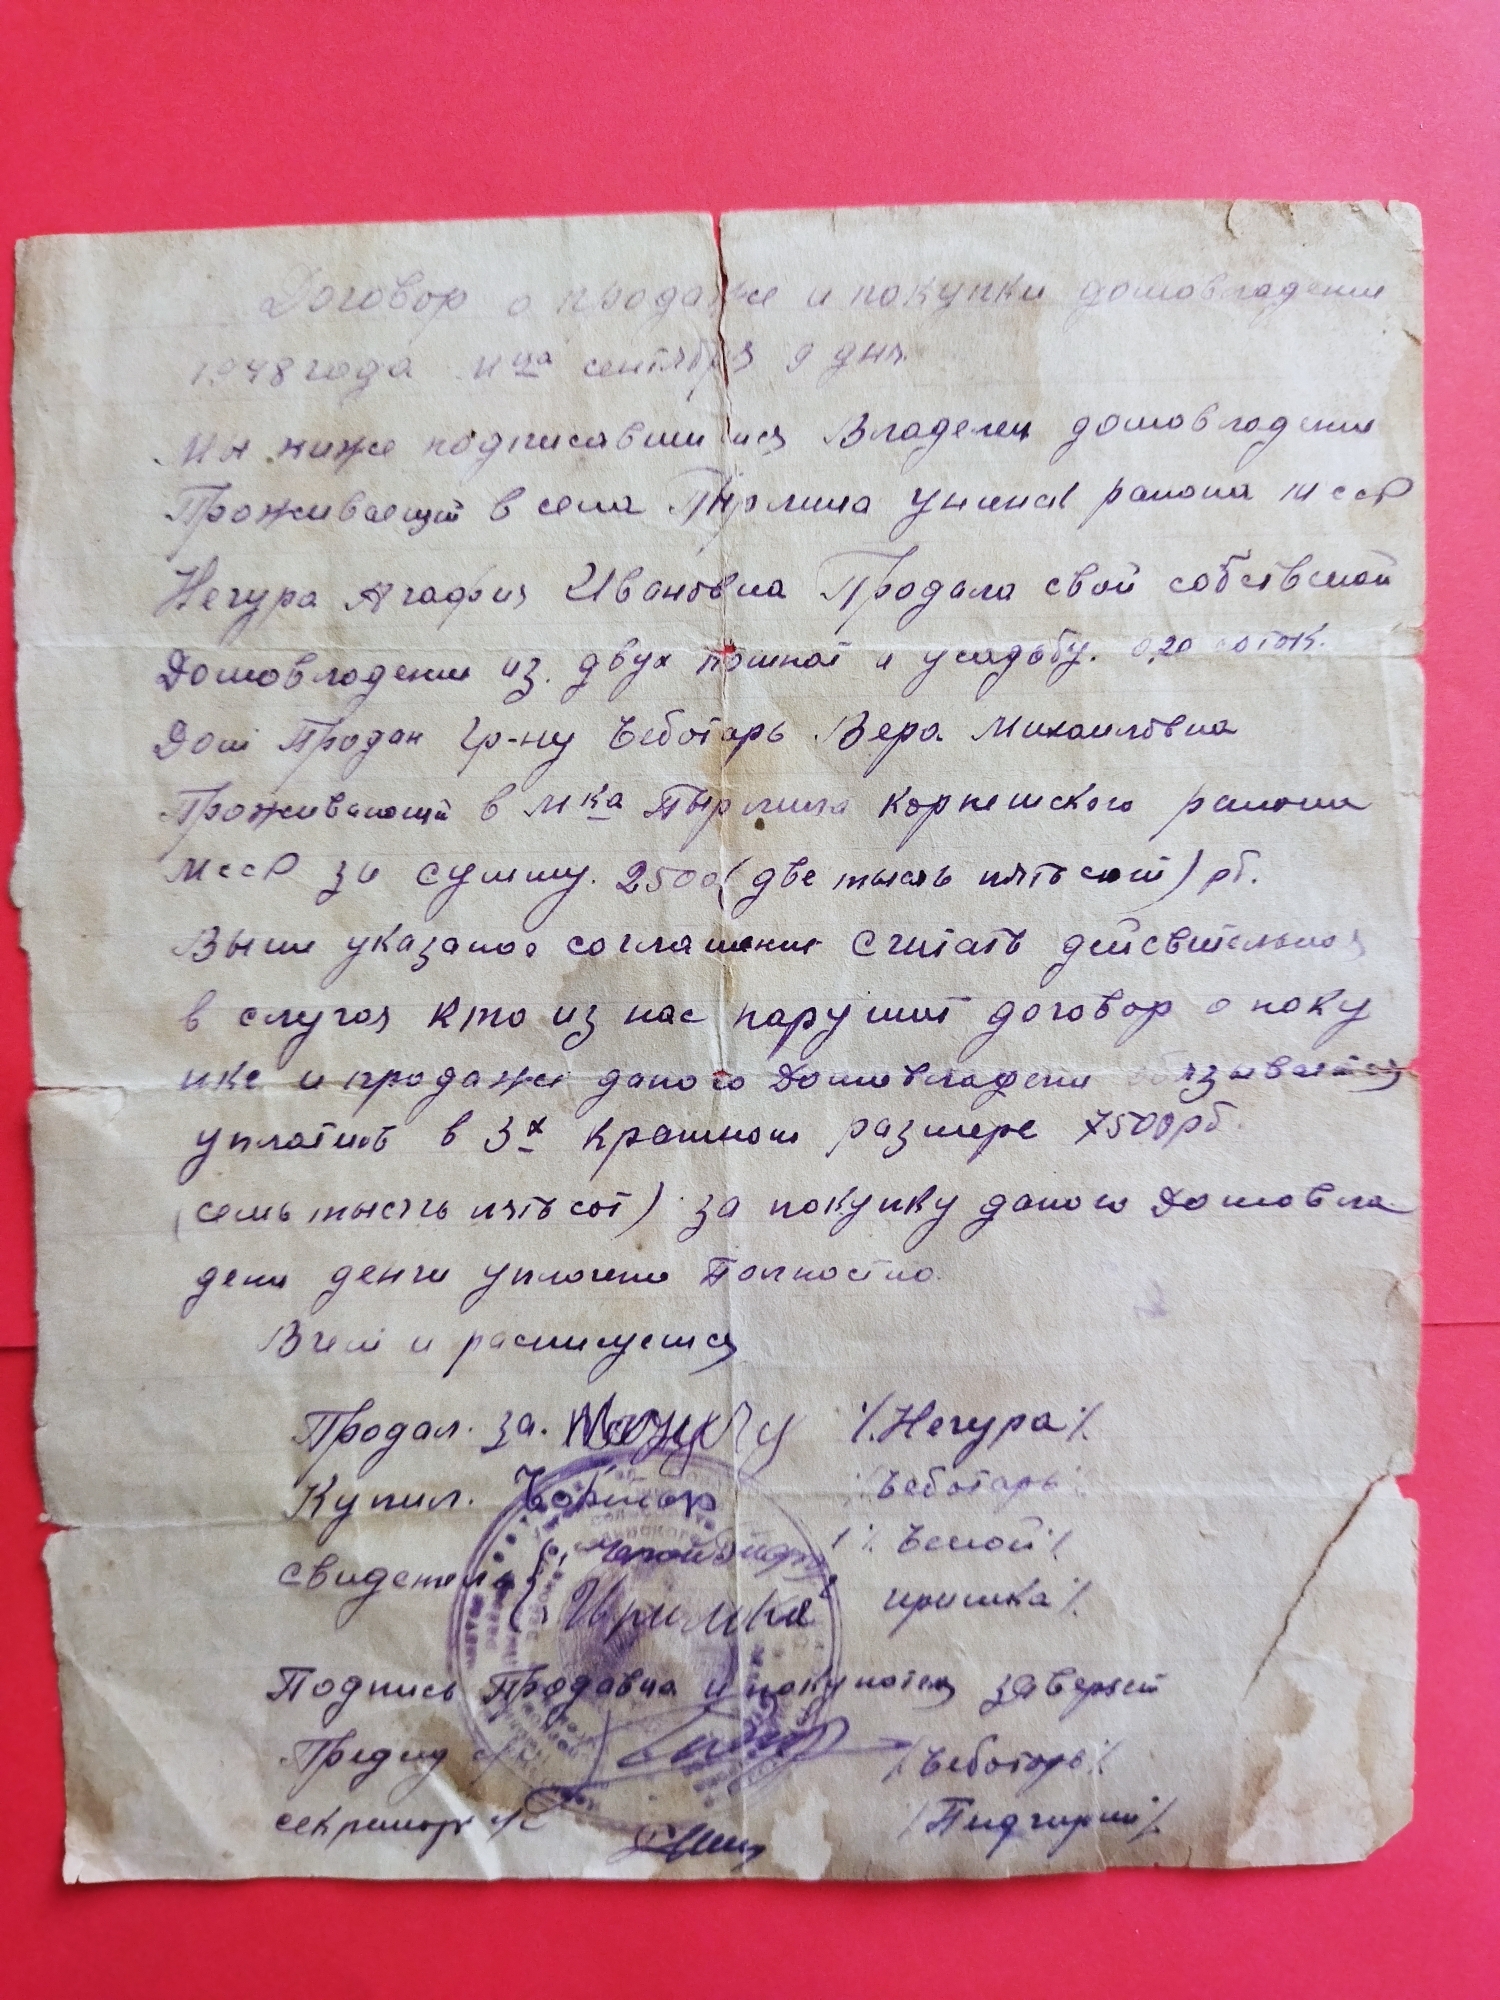 Договор о продаже и покупки домовладение
1948 года м-ца сентября 9 дня.
Мы ниже подписавшиися Владелец домовладение
Проживающий в села Пырлица района МССР
Негура Агафия Ивановна Продала свой собственой
Домовладение из. двух комнат и усадьбу. 0,20 соток.
Дом Продан Гр-ну Чеботарь Вера Михаиловна
Проживающй в м-ка Пырлица Корнешского района
МССР за сумму. 2500 (две тысяч пятьсот) рб.
Выше указаное соглашение Считать действительная
в случая кто из нас нарушит договор о поку
пке и продаже даного Домовладени обязывается
уплатить в 3х кратном размере 7500 рб.
(семь тысячь пятьсот) за покупку даного Домовла
дени денги уплачено Полностю.
В чем и распишемся
Продал. за. /.Негура/.
Купил. Чеботар /Чеботарь/
свидетели { /. Чекой /.
Иримка иримка /.
Подпись Продавца и покупателя заверяет
Предид с/с /Чеботорь/
секретарь с/С /Пидгирний/.